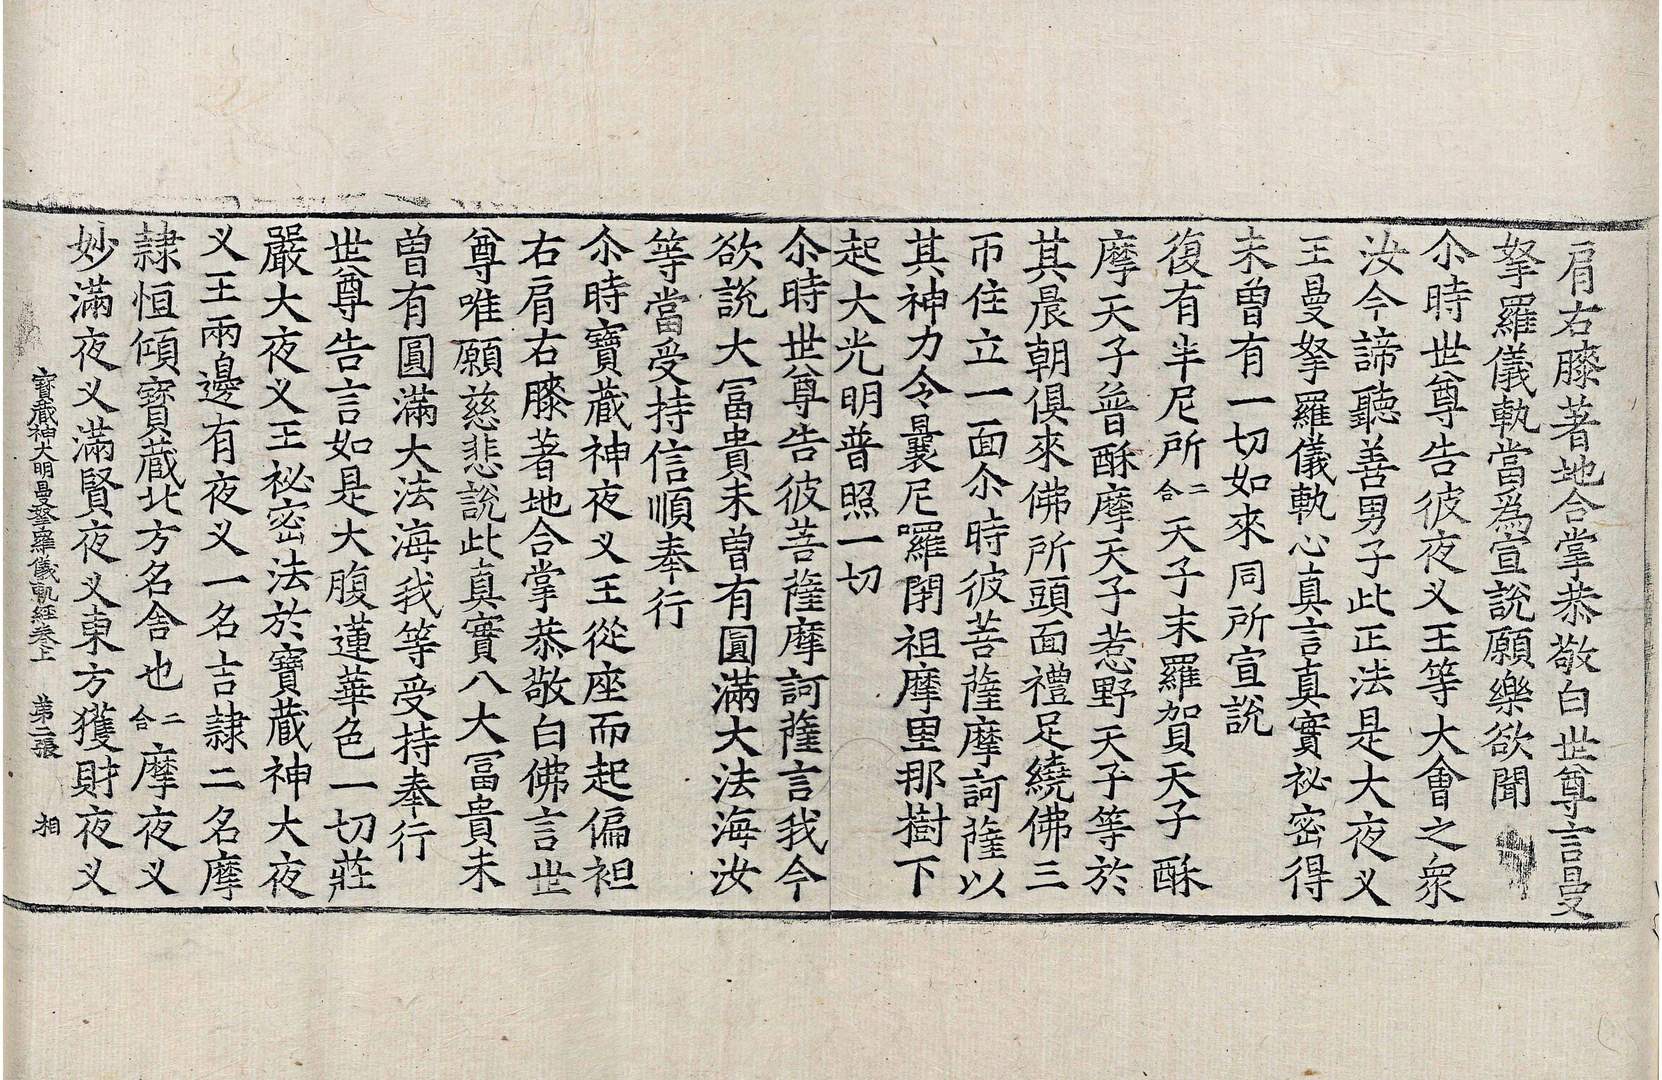 肩右膝著地合掌恭敬白世尊言曼
拏羅儀軌當為宣說願樂欲聞
尒時世尊告彼夜叉王等大會之眾
汝今諦聽善男子此正法是大夜叉
王曼拏羅儀軌心真言真實祕密得
未曾有一切如來同所宣說
復有半尼所二合天子末羅賀天子酥
摩天子普酥摩天子惹野天子等於
其晨朝俱來佛所頭面禮足繞佛三
帀住立一面尒時彼菩薩摩訶薩以
其神力令曩尼囉閉祖摩里那樹下
起大光明普照一切
尒時世尊告彼菩薩摩訶薩言我今
欲說大富貴未曾有圓滿大法海汝
等當受持信順奉行
尒時寶藏神夜叉王從座而起偏袒
右肩右膝著地合掌恭敬白佛言世
尊唯願慈悲說此真實八大富貴未
曾有圓滿大法海我等受持奉行
世尊告言如是大腹蓮華色一切莊
嚴大夜叉王祕密法於寶藏神大夜
叉王兩邊有夜叉一名吉隸二名摩
隸恒傾寶藏北方名舍也二合摩夜叉
妙滿夜叉滿賢夜叉東方獲財夜叉
寶藏神大明曼拏羅儀軌經卷上 第二張 相